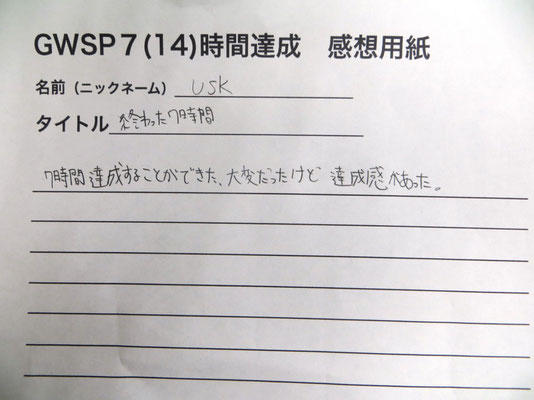 GWSP7(14)時間達成 感想用紙
名前(ニックネーム) USK
タイトル 終わった7時間
7時間達成することができた、大変だったけど 達成感があった。